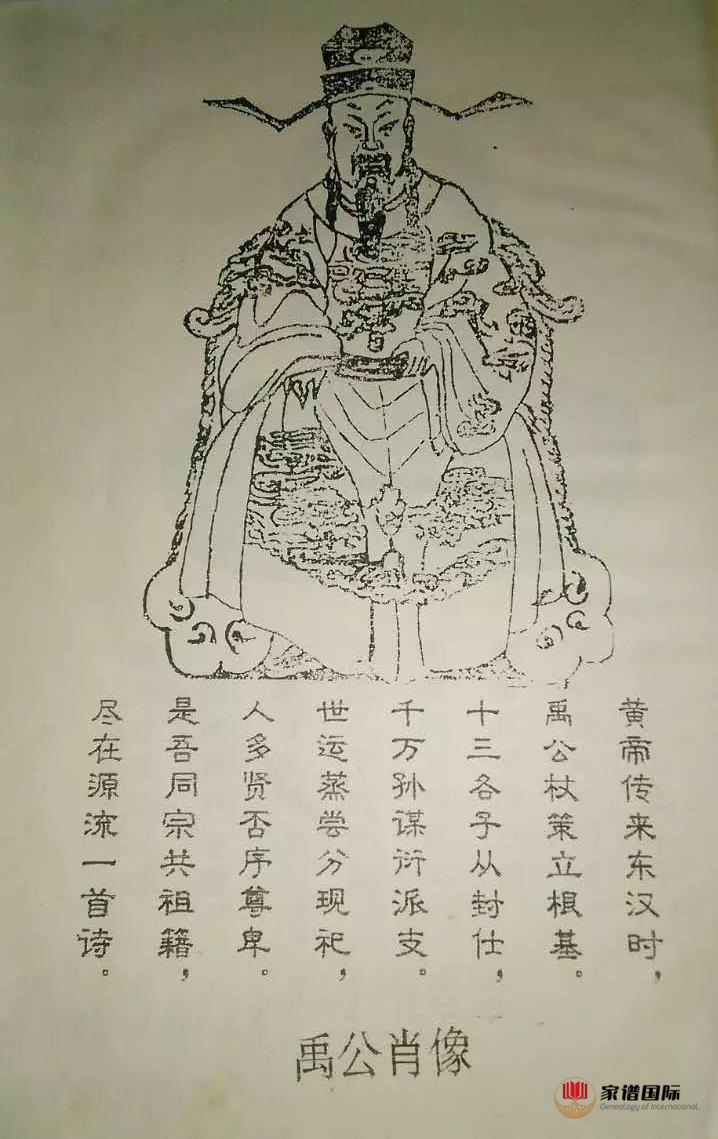 黄帝传来东汉时，
禹公杖策立根基。
十三各子从封仕，
千万孙谋衍派支。
世运蒸尝分现祀，
人多贤否序尊卑。
是吾同宗共祖籍，
尽在源流一首诗。
禹公肖像
家谱国际
Genealogy of International